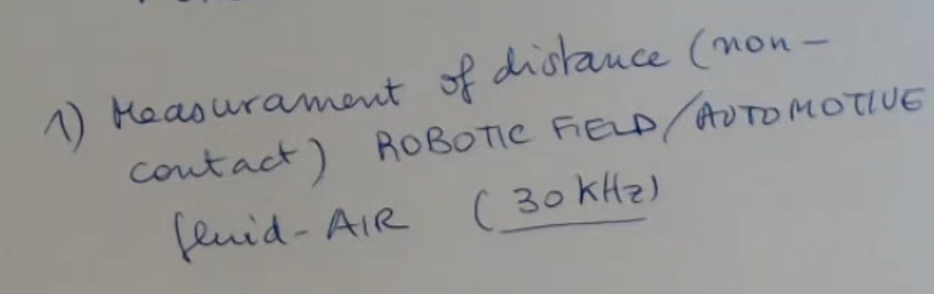 1) Measurament of distance (non-
contact) ROBOTIC FIELD/AUTOMOTIVE
fluid-AIR (30 kHz)